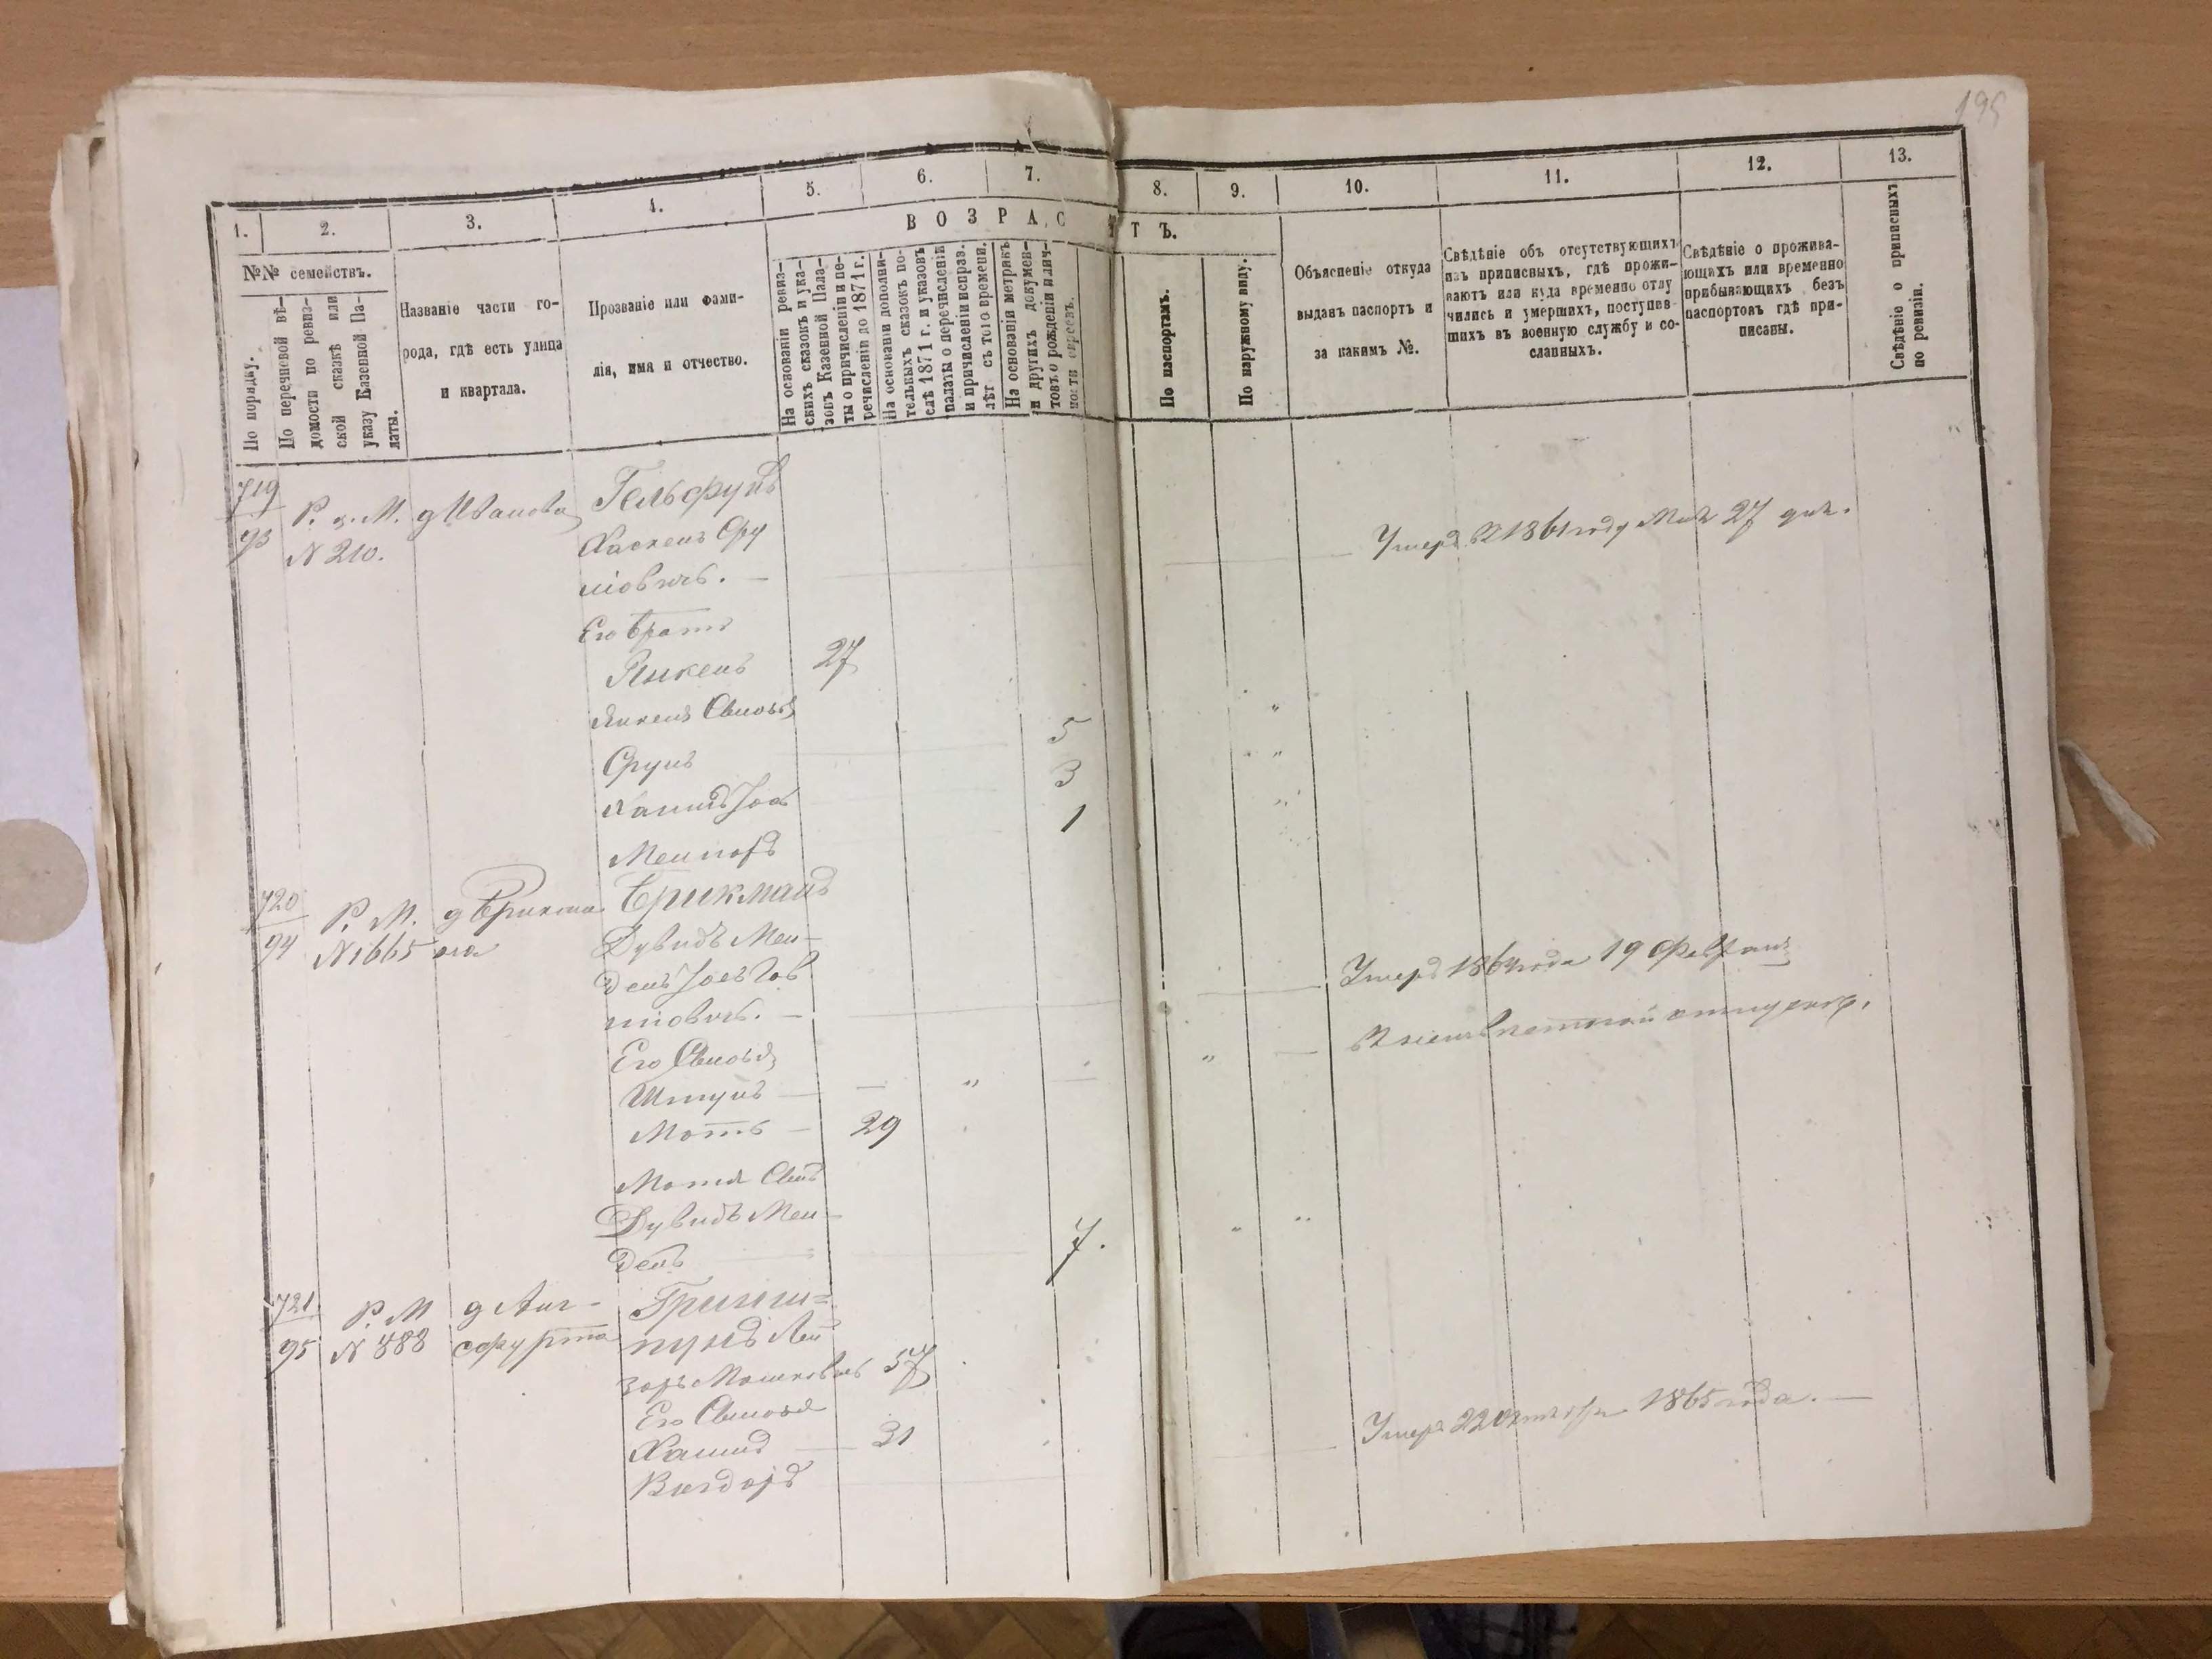 195
1. 2. 3. 4. 5. 6. 7. 8. 9. 10. 11. 12. 13.
ВОЗРАСТЪ.
№№ семействъ.
По порядку.
По перечневой вѣ-
домости по ревиз-
ской сказкѣ или
указу Казенной Па-
латы.
Названіе части го-
рода, гдѣ есть улица
и квартала.
Прозваніе или фами-
лія, имя и отчество.
На основаніи ревиз-
скихъ сказокъ и ука-
зовъ Казенной Пала-
ты о причисленіи и пе-
речисленіи до 1871 г.
На основаніи дополни-
тельныхъ сказокъ по-
слѣ 1871 г. и указовъ
палаты о перечисленіи
и причисленіи исправ.
лѣт съ того времени.
На основаніи метрикъ
и другихъ докумен-
товъ о рожденіи и лич-
ности евреевъ.
По паспортамъ.
По наружному виду.
Объясненіе откуда
выданъ паспортъ и
за какимъ №.
Свѣдѣніе объ отсутствующихъ
изъ приписныхъ, гдѣ прожи-
ваютъ или куда временно отлу
чились и умершихъ, поступив-
шихъ въ военную службу и со-
сланныхъ.
Свѣдѣніе о прожива-
ющахъ или временно
прибывающихъ безъ
паспортовъ гдѣ при-
писаны.
Свѣдѣніе о приписныхъ
по ревизіи.
719
93
Р. М. д Иванова
N 210.
Гельфунъ
Хаскель Сру
ліовичъ. — Умеръ въ 1861 году Мая 27 дня.
Его братъ
Янкель 27
Янкеля Сыновья
Сруль 5
Хаимъ Іос 3
Менноръ 1
720
94
Р. М. д Брикма
N 1665 на
Брикманъ
Дувидъ Мен-
дель Іосъ Гов
шовичъ. — Умеръ 1864 года 19 Февраля
Его Сыновья
Шмуль —
Моть — 29
Мотя Сынъ
Дувидъ Мен-
дель 7.
721
95
Р. М д Анг-
N 488 сфурта
Гринш=
пунъ Лей
зоръ Мошковичъ 57
Его Сыновья
Хаимъ — 31 Умеръ 22 Октября 1865 года. —
Вигдоръ